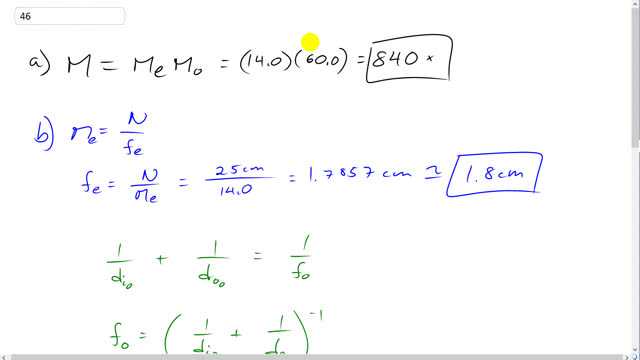 46
a) M = MeMo = (14.0)(60.0) = 840 ×
b) Me = N/fe
fe = N/Me = 25cm/14.0 = 1.7857 cm ≃ 1.8cm
1/di₀ + 1/do₀ = 1/fo
fo = (1/di₀ + 1/do)⁻¹